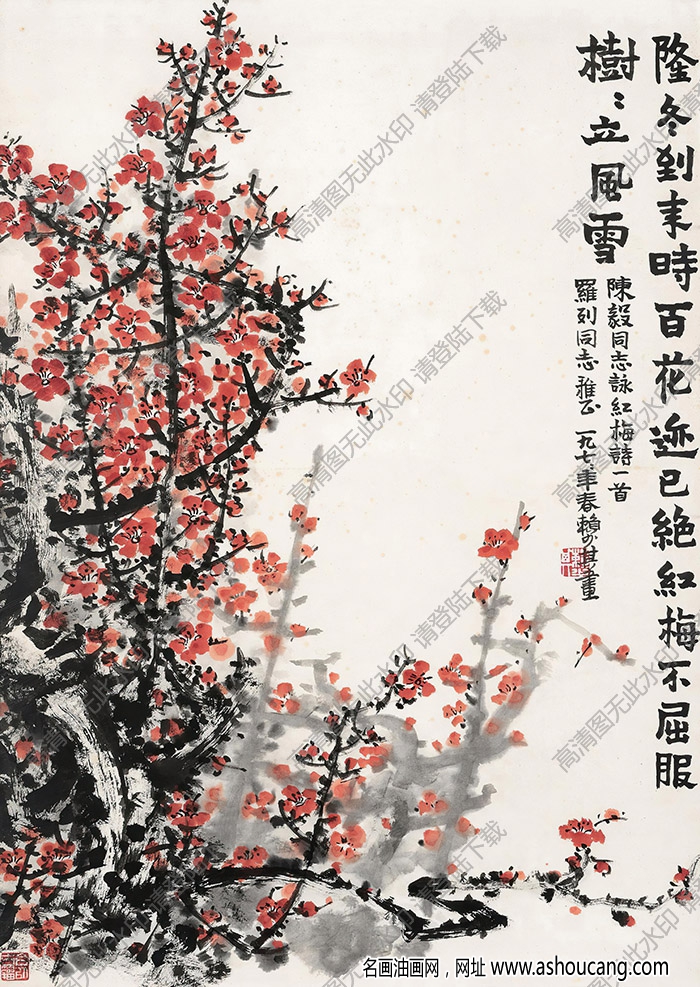 隆冬到来時百花迹已絶紅梅不屈服
樹〻立風雪
陳毅同志詠紅梅詩一首
羅列同志雅正 一九七 年春賴少其畫
高清图无此水印 请登陆下载
名画油画网，网址 www.ashoucang.com